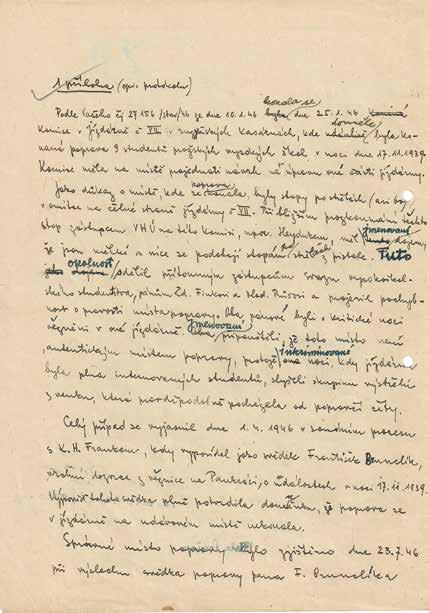 1 příloha (opis protokolu)
Podle Vašeho čj 27.156/stav/46 ze dne 10.1.46 konala se dne 25.1.46
Komise v jízdárně č VII v ruzyňských kasárnách, kde domněle byla ko-
nána poprava 9 studentů pražských vysokých škol v noci dne 17.11.1939.
Komise měla na místě pojednati návrh na úpravu oné části jízdárny.
Jako důkaz o místě, kde se poprava konala, byly stopy po střelách (asi 60)
v omítce na čelné straně jízdárny č VII. Při bližším prozkoumání těchto
stop zástupcem VHÚ na této komisi, npor. Heydukem, měl jmenovaný dojem,
že jsou mělké a více se podobají stopám po střelách z pistole. Tuto
okolnost sdělil přítomným zástupcům svazu vysokoškol-
ského studentstva, pánům Zd. Finkovi a Vlad. Růsovi a projevil pochyb-
nost o pravosti místa popravy. Oba pánové byli v kritické noci
vězněni v oné jízdárně. Jmenovaní připouštěli, že toto místo není
autentickým místem popravy, protože inkriminované noci, kdy jízdárna
byla plna internovaných studentů, slyšeli skupinu výstřelů
z venku, která pravděpodobně pocházela od popravčí čety.
Celý případ se vyjasnil dne 1.4.1946 v soudním procesu
s K. H. Frankem, kdy vypovídal jako svědek František
vrchní dozorce z věznice na Pankráci, o událostech v noci 17.11.1939.
Výpověď tohoto svědka plně potvrdila domněnku, že poprava se
v jízdárně na udávaném místě nekonala.
Správné místo popravy bylo zjištěno dne 23.7.46
při výslechu svědka popravy pana F.